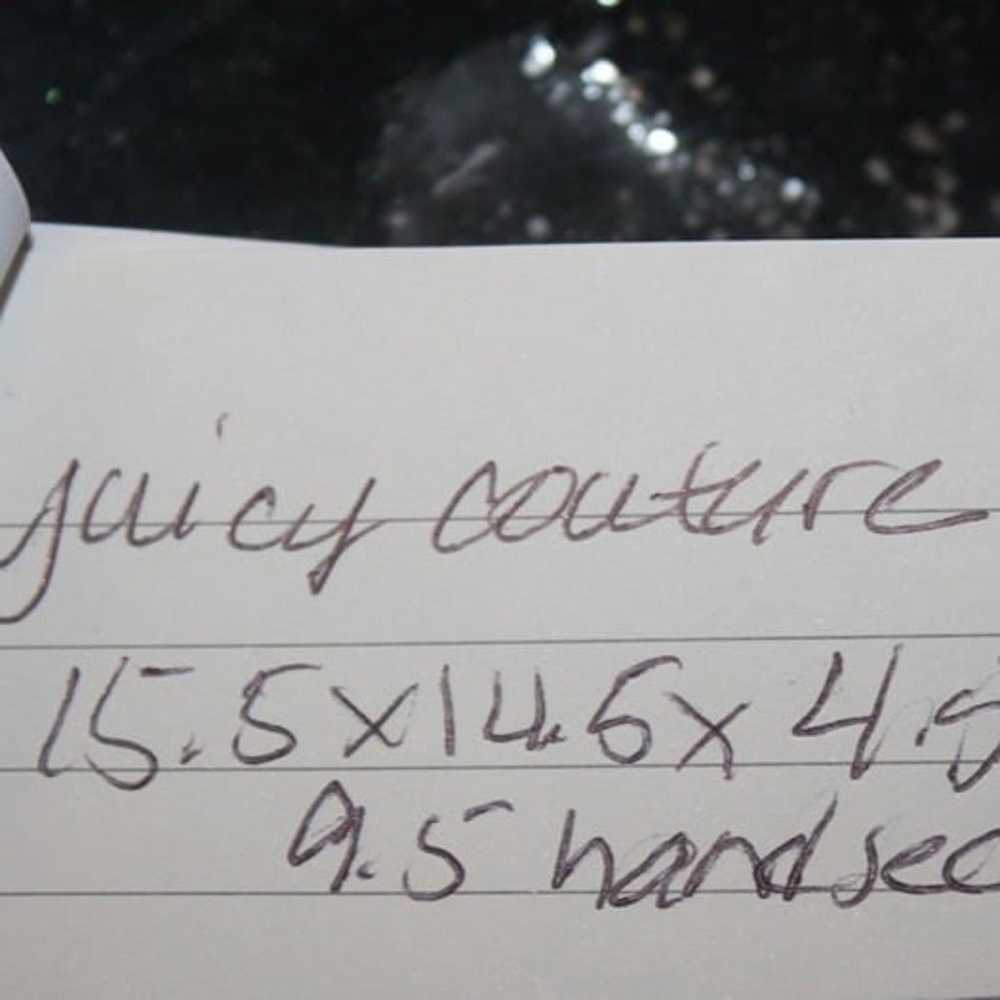 juicy couture
15.5x14.5x 4.5
9.5 handsec